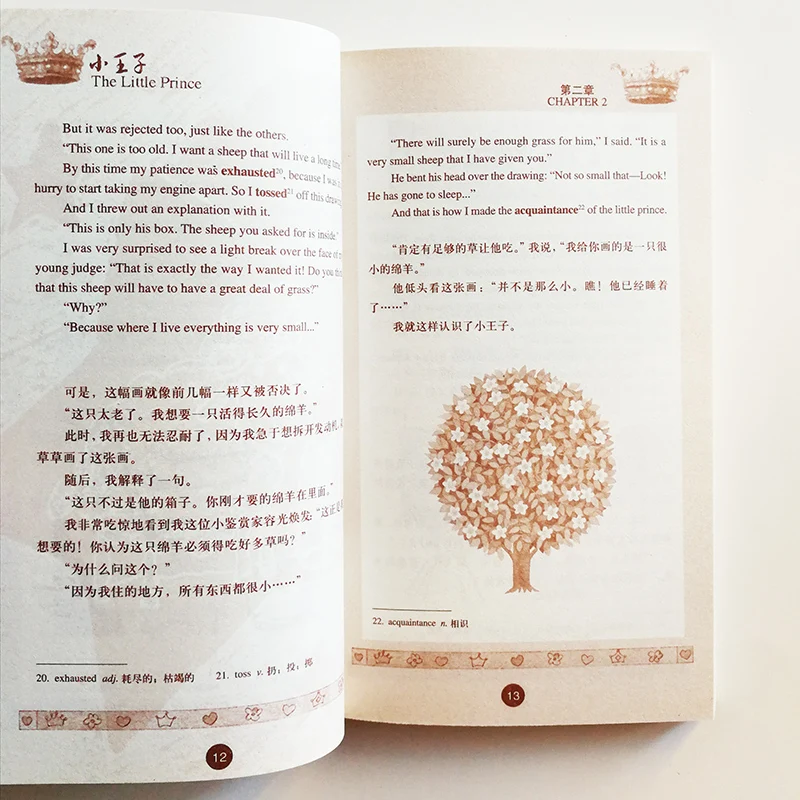 小王子
The Little Prince
But it was rejected too, just like the others.
“This one is too old. I want a sheep that will live a long time
By this time my patience was exhausted20, because I was
hurry to start taking my engine apart. So I tossed21 off this
And I threw out an explanation with it.
“This is only his box. The sheep you asked for is inside.”
I was very surprised to see a light break over the face of
young judge: “That is exactly the way I wanted it! Do you
that this sheep will have to have a great deal of grass?”
“Why?”
“Because where I live everything is very small...”
可是，这幅画就像前几幅一样又被否决了。
“这只太老了。我想要一只活得长久的绵羊。”
此时，我再也无法忍耐了，因为我急于想拆开发动机，
草草画了这张画。
随后，我解释了一句。
“这只不过是他的箱子。你刚才要的绵羊在里面。”
我非常吃惊地看到我这位小鉴赏家容光焕发：“这正是
想要的！你认为这只绵羊必须得吃好多草吗？”
“为什么问这个？”
“因为我住的地方，所有东西都很小……”
20. exhausted adj. 耗尽的；枯竭的 21. toss v. 扔；投；掷
12
第二章
CHAPTER 2
“There will surely be enough grass for him,” I said. “It is a
very small sheep that I have given you.”
He bent his head over the drawing: “Not so small that—Look!
He has gone to sleep...”
And that is how I made the acquaintance22 of the little prince.
“肯定有足够的草让他吃。”我说，“我给你画的是一只很
小的绵羊。”
他低头看这张画：“并不是那么小。瞧！他已经睡着
了……”
我就这样认识了小王子。
22. acquaintance n. 相识
13